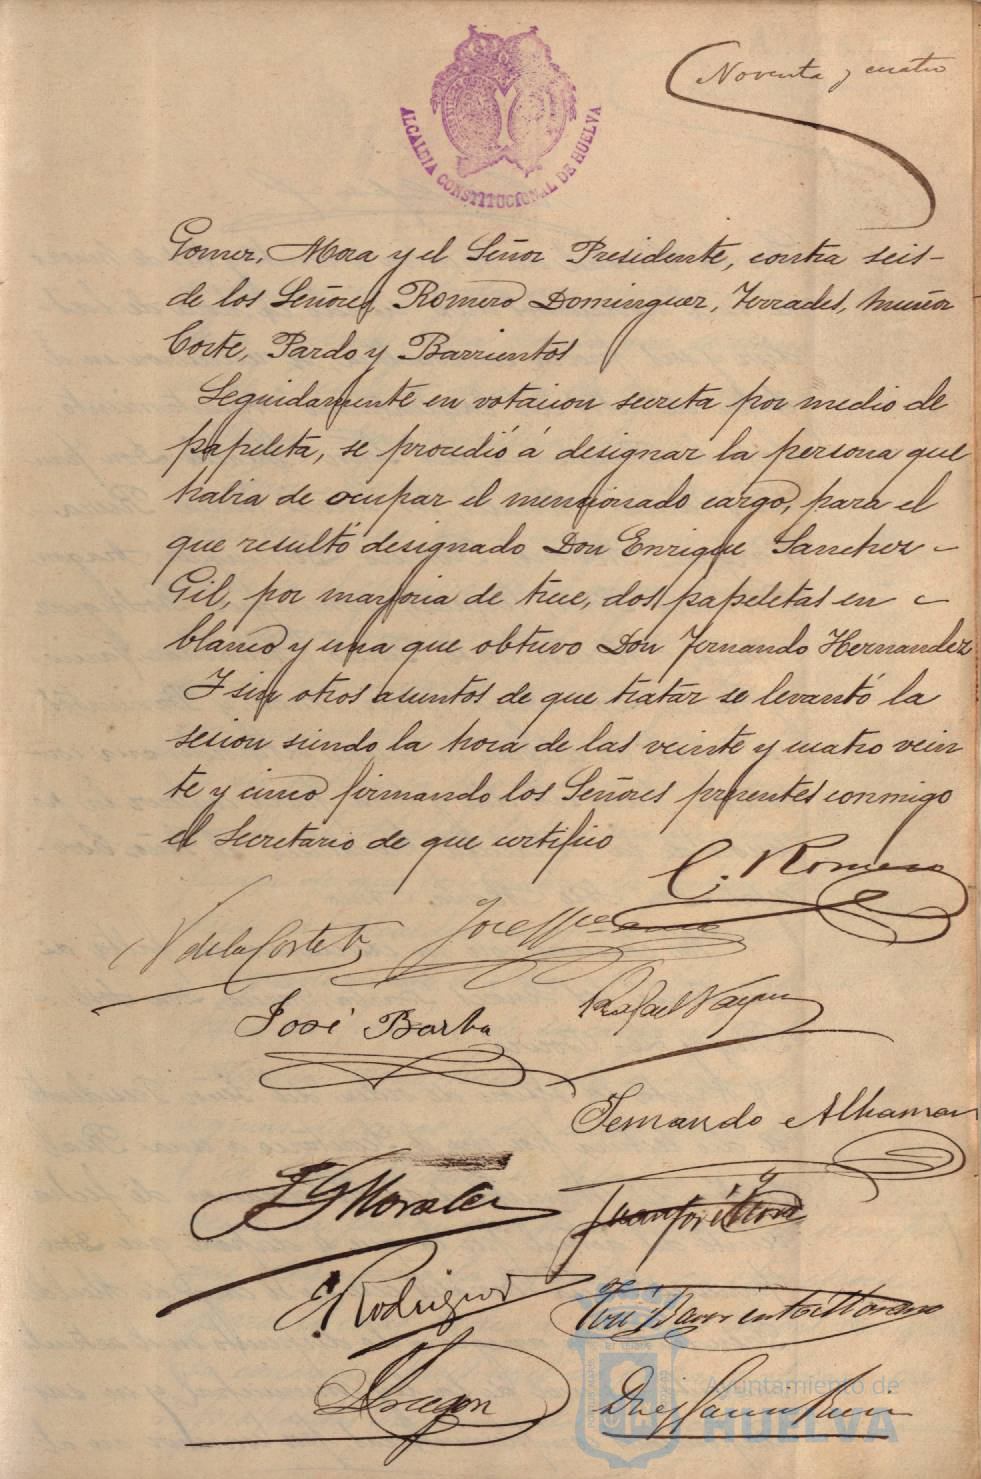 Noventa y cuatro
ALCALDIA CONSTITUCIONAL DE HUELVA
Gomez, Mora y el Señor Presidente, contra seis-
de los Señores Romero Dominguez, Terrades, Muñoz
Corte, Pardo y Barrientos
Seguidamente en votacion secreta por medio de
papeleta, se procedió á designar la persona que
habia de ocupar el mencionado cargo, para el
que resultó designado Don Enrique Sanchez -
Gil, por mayoria de trece, dos papeletas en -
blanco y una que obtuvo Don Fernando Hernandez
Y sin otros asuntos de que tratar se levantó la
sesion siendo la hora de las veinte y cuatro vein
te y cinco firmando los Señores presentes conmigo
el Secretario de que certifico
C. Romero
V de la Corte
José
José Barba
Rafael
Fernando Alhaman
Morales
Juan José Mora
E. Rodriguez
José Barrientos Moreno
Aragon
Ayuntamiento de
HUELVA